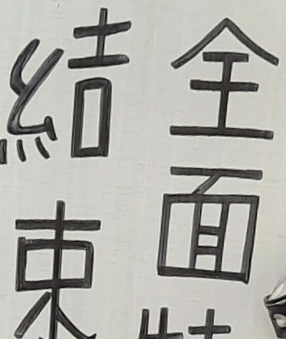 全面
結束